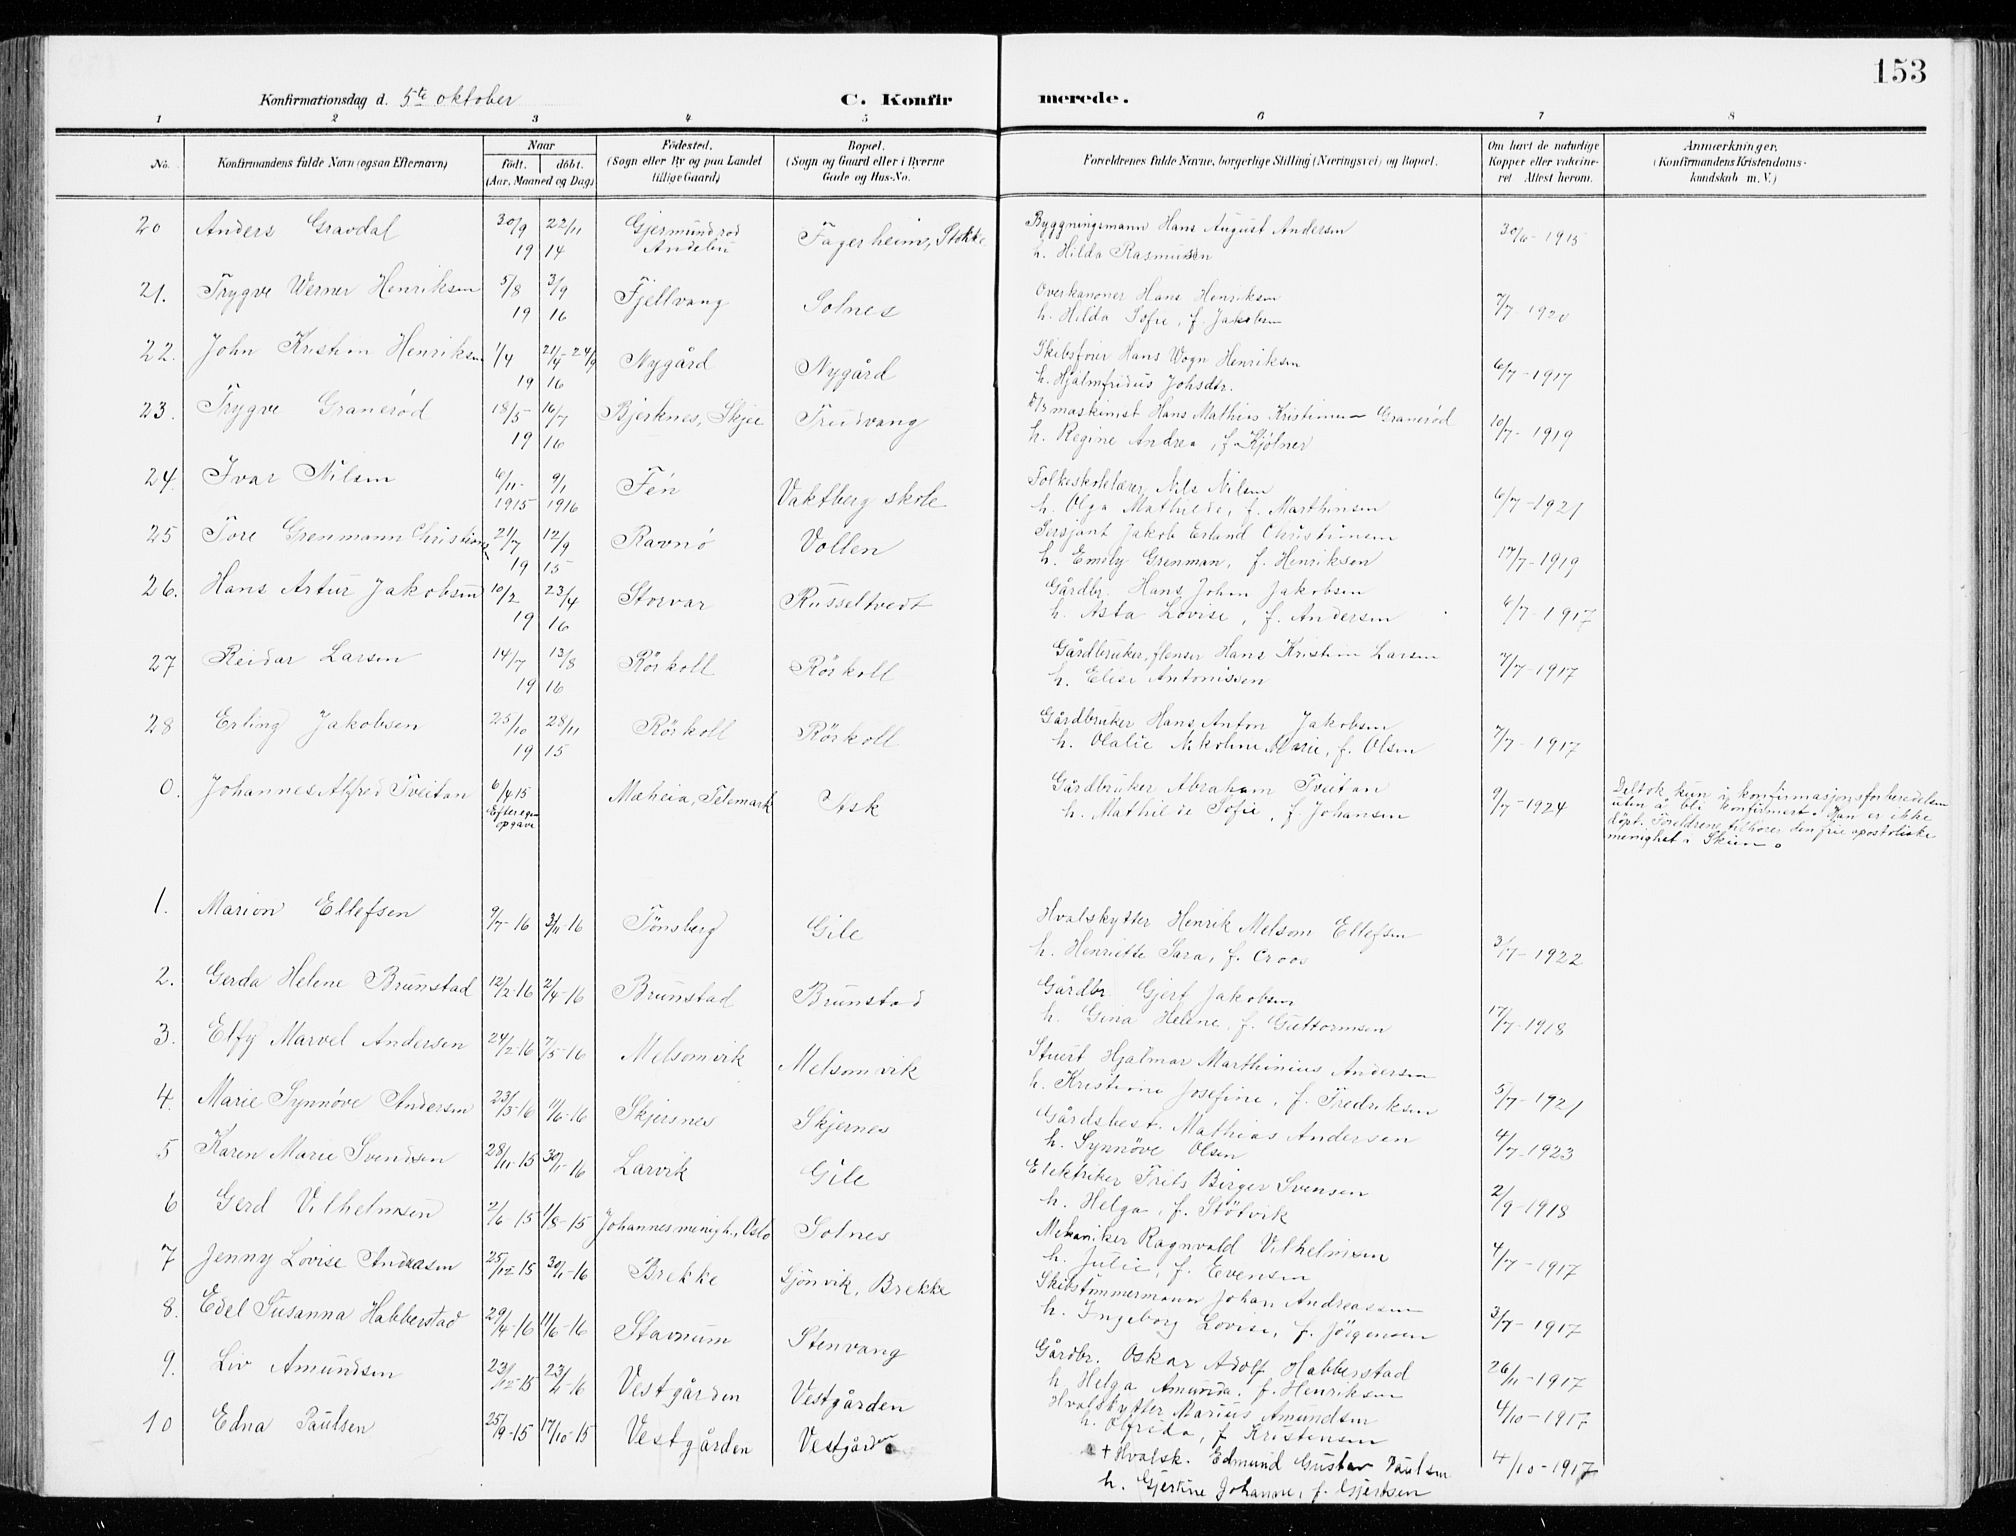 153
Konfirmationsdag d. 5te oktober
C. Konfirmerede.
1 2 3 4 5 6 7 8
No.
Konfirmandens fulde Navn (ogsaa Efternavn)
Naar
født. døbt.
(Aar, Maaned og Dag)
Fødested.
(Sogn eller By og paa Landet
tillige Gaard)
Bopæl.
(Sogn og Gaard eller i Byerne
Gade og Hus-No.
Forældrenes fulde Navne, borgerlige Stilling (Næringsvei) og Bopæl.
Om havt de naturlige
Kopper eller vakcine-
ret Attest herom.
Anmærkninger.
(Konfirmandens Kristendoms-
kundskab m. V.)
20 Anders Gravdal 30/9 1922/11 14 Gjermundrød Andebu Fagerheim, Stokke Byggningsmann Hans August Andersen 30/6-1915
h. Hilda Rasmussen
21. Trygve Werner Henriksen 5/8 3/9 Fjellvang Solnes Overkanoner Hans Henriksen 7/7-1920
19 16 h. Hilda Sofie, f. Jakobsen
22. John Kristian Henriksen 1/4 21/4-24/9 Nygård Nygård Skibsfører Hans Wogn Henriksen 6/7-1917
19 16 h. Hjalmfridus Johsdtr.
23. Trygve Granerød 18/5 16/7 Bjerknes, Skjee Trudvang maskinist Hans Mathias Kristiansen Granerød 10/7-1919
19 16 h. Regine Andrea, f. Kjølner
24. Ivar Nilsen 6/11- 9/1 Fén Vaktberg skole Folkeskolelærer Nils Nilsen 6/7-1921
1915 1916 h. Olga Mathilde, f. Marthinsen
25 Tore Grenmann Christiansen 21/7 12/9 Ravnø Vollen Sersjant Jakob Erland Christiansen 17/7-1919
19 15 h. Emely Grenman, f. Henriksen
26. Hans Artur Jakobsen 10/2 23/4 Storvar Russeltvedt Gårdbr. Hans Johan Jakobsen 6/7-1917
19 16 h. Asta Lovise, f. Andersen
27 Reidar Larsen 14/7 13/8 Rörkoll Rörkoll Gårdbruker, flenser Hans Kristian Larsen 7/7-1917
19 16 h. Elise Antonissen
28 Erling Jakobsen 25/10 28/11 Rörkoll Rörkoll Gårdbruker Hans Anton Jakobsen 7/7-1917
19 15 h. Olalie Nikoline Marie, f. Olsen
0. Johannes Alfred Tveitan 6/4 15 Mæheia, Telemark Ask Gårdbruker Abraham Tveitan 9/7-1924
Efter egen
opgave
h. Mathilde Sofie, f. Johansen
Deltok kun i konfirmasjonsforberedelsen
uten å bli konfirmert. Han er ikke
döpt. Foreldrene tilhører den frie apostoliske
menighet i Skien.
1. Marion Ellefsen 9/7-16 3/11-16 Tønsberg Gile Hvalskytter Henrik Melsom Ellefsen 3/7-1922
h. Henriette Sara, f. Croos
2. Gerda Helene Brunstad 12/2-16 2/4-16 Brunstad Brunstad Gårdbr. Gjert Jakobsen 17/7-1918
h. Gina Helene, f. Guttormsen
3. Elfy Marvel Andersen 24/2-16 7/5-16 Melsomvik Melsomvik Stuert Hjalmar Marthinius Andersen 5/7-1921
h. Kristine Josefine, f. Fredriksen
4. Marie Synnøve Andersen 23/3-16 11/6-16 Skjersnes Skjernes Gårdsbest. Mathias Andersen 4/7-1923
h. Synnøve Olsen
5 Karen Marie Svendsen 28/11-15 30/1-16 Larvik Gile Elektriker Frits Birger Svensen 2/9-1918
h. Helga, f. Stötvik
6 Gerd Vilhelmsen 2/6-15 1/8-15 Johannes menigh., Oslo Solnes Mekaniker Ragnvald Vilhelmsen 4/7-1917
h. Julie, f. Evensen
7 Jenny Lovise Andreasen 25/12-15 30/1-16 Brekke Gjönvik, Brekke Skibstømmermann Johan Andreassen 3/7-1917
h. Ingeborg Lovise, f. Jörgensen
8. Edel Susanna Habberstad 29/4-16 11/6-16 Stavnum Stenvang Gårdbr. Oskar Adolf Habberstad 26/11-1917
h. Helga Amunda. f. Henriksen
9. Liv Amundsen 23/12-15 23/4-16 Vestgården Vestgården Hvalskytter Marius Amundsen 4/10-1917
h. Olfrida, f. Kristensen
10 Edna Paulsen 25/9-15 17/10-15 Vestgården Vestgården + Hvalsk. Edmund Gustav Paulsen 4/10-1917
h. Gjertine Johanne, f. Gjertsen